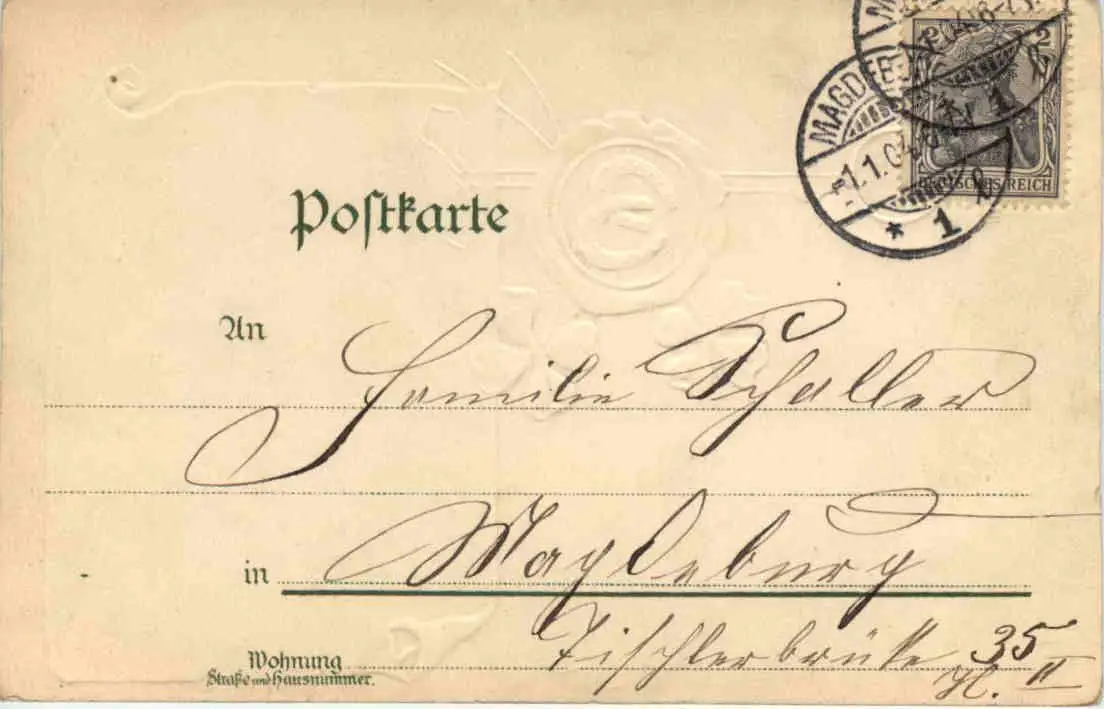 MAGDEBURG
1.1.04.
* 1
2 2
DEUTSCHES REICH
Postkarte
An Familie Schaller
in Magdeburg
Wohnung Tischlerbrücke 35 II
Straße und Hausnummer. H.